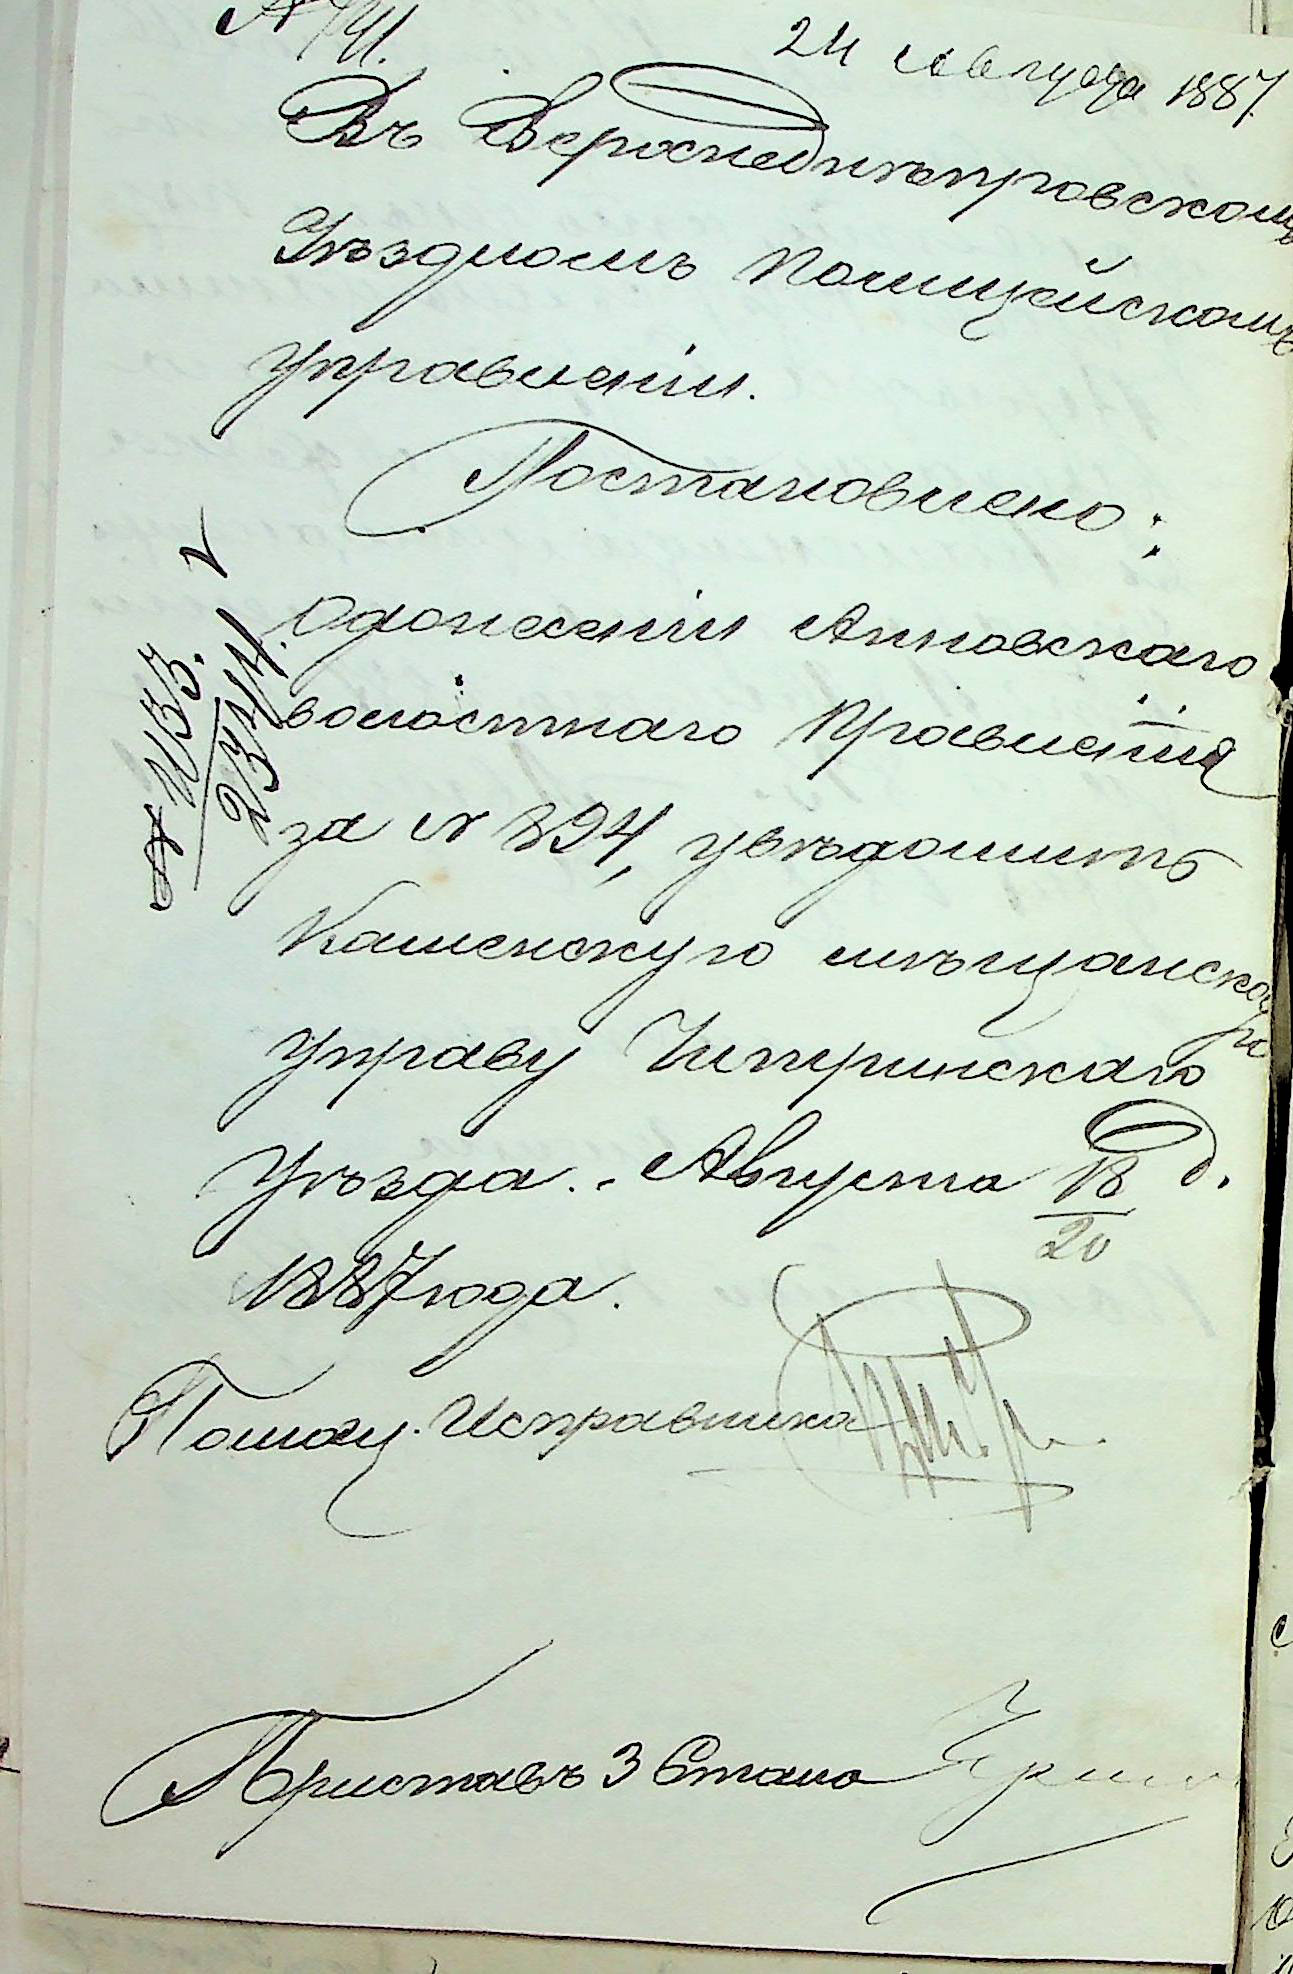 24 августа 1887.
Въ Верхнеднѣпровскомъ
Уѣздномъ Полицейскомъ
Управленіи.
Постановлено:
О донесеніи Анновскаго
волостнаго Правленія
за № 894, увѣдомить
Каменскую мѣщанскую
управу Чигринскаго
Уѣзда. Августа 18 д.
20
1887 года.
Помощ. Исправника
Приставъ 3 Стана
№ 1133.
2344.